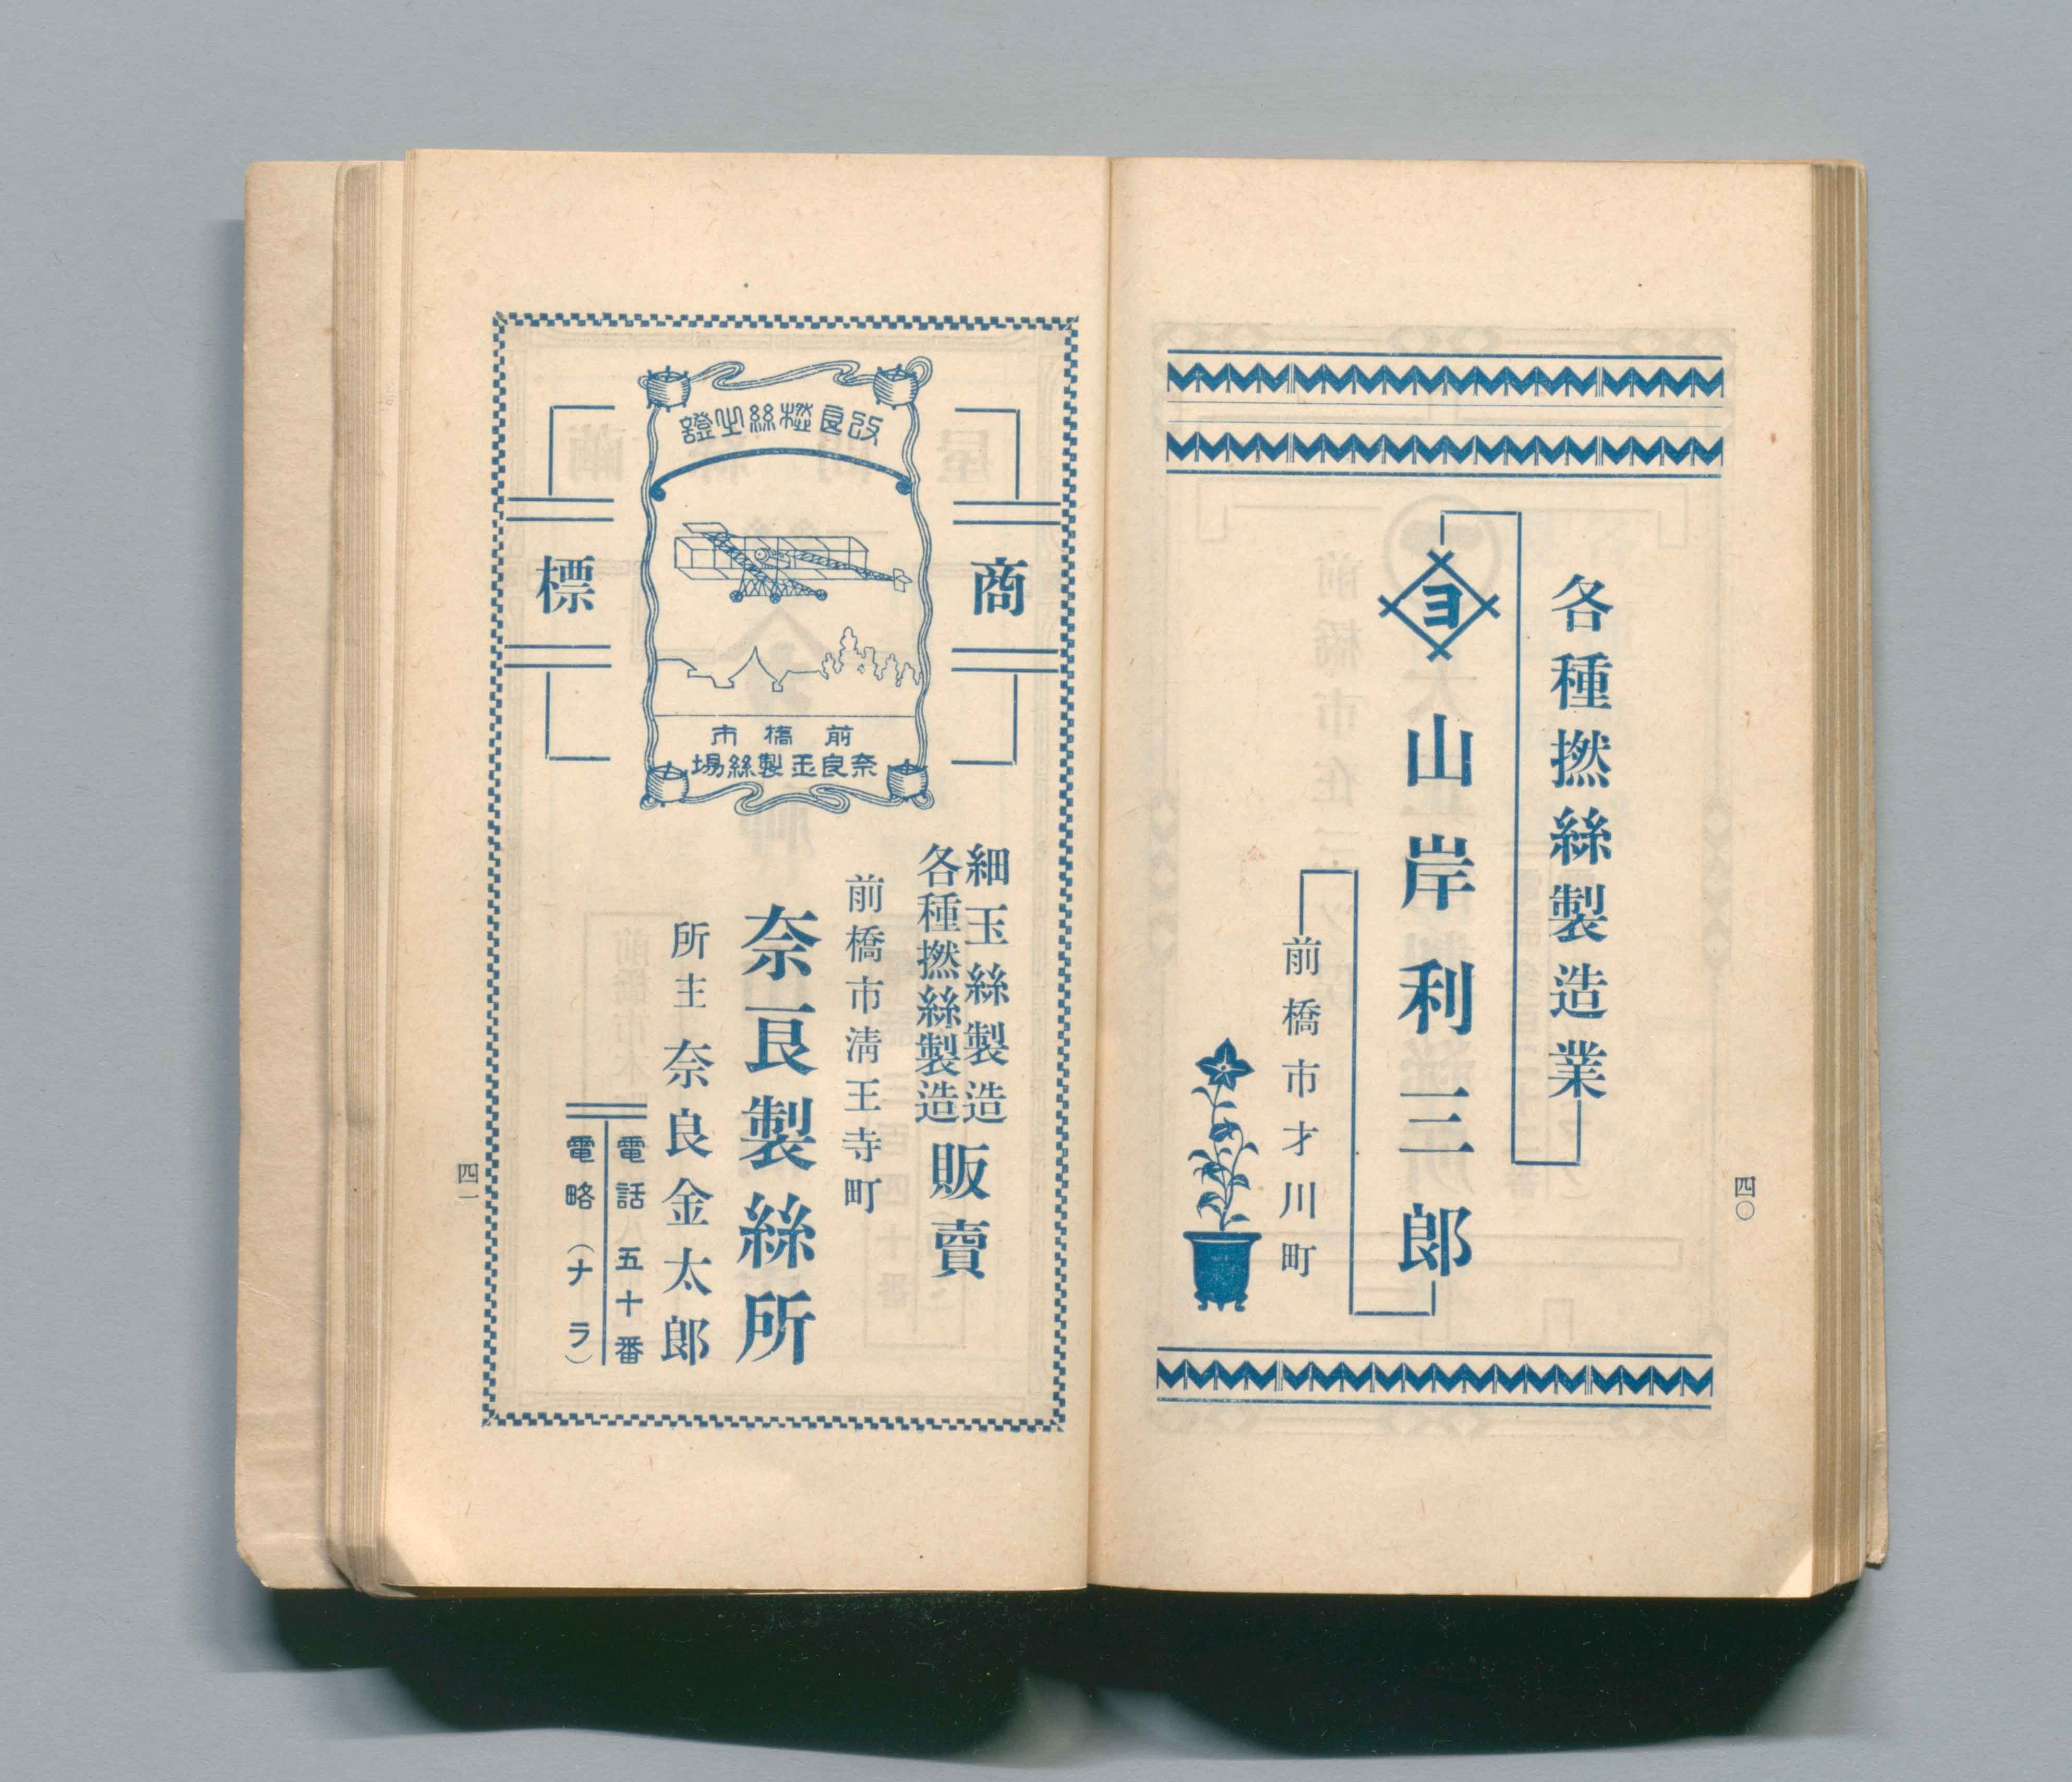 各種撚絲製造業
ヨ
山岸利三郎
前橋市才川町
四〇
商標
改良撚絲之證
前橋市
奈良玉製絲場
細玉絲製造
各種撚絲製造
販賣
前橋市淸王寺町
奈良製絲所
所主 奈良金太郎
電話 五十番
電略（ナラ）
四一